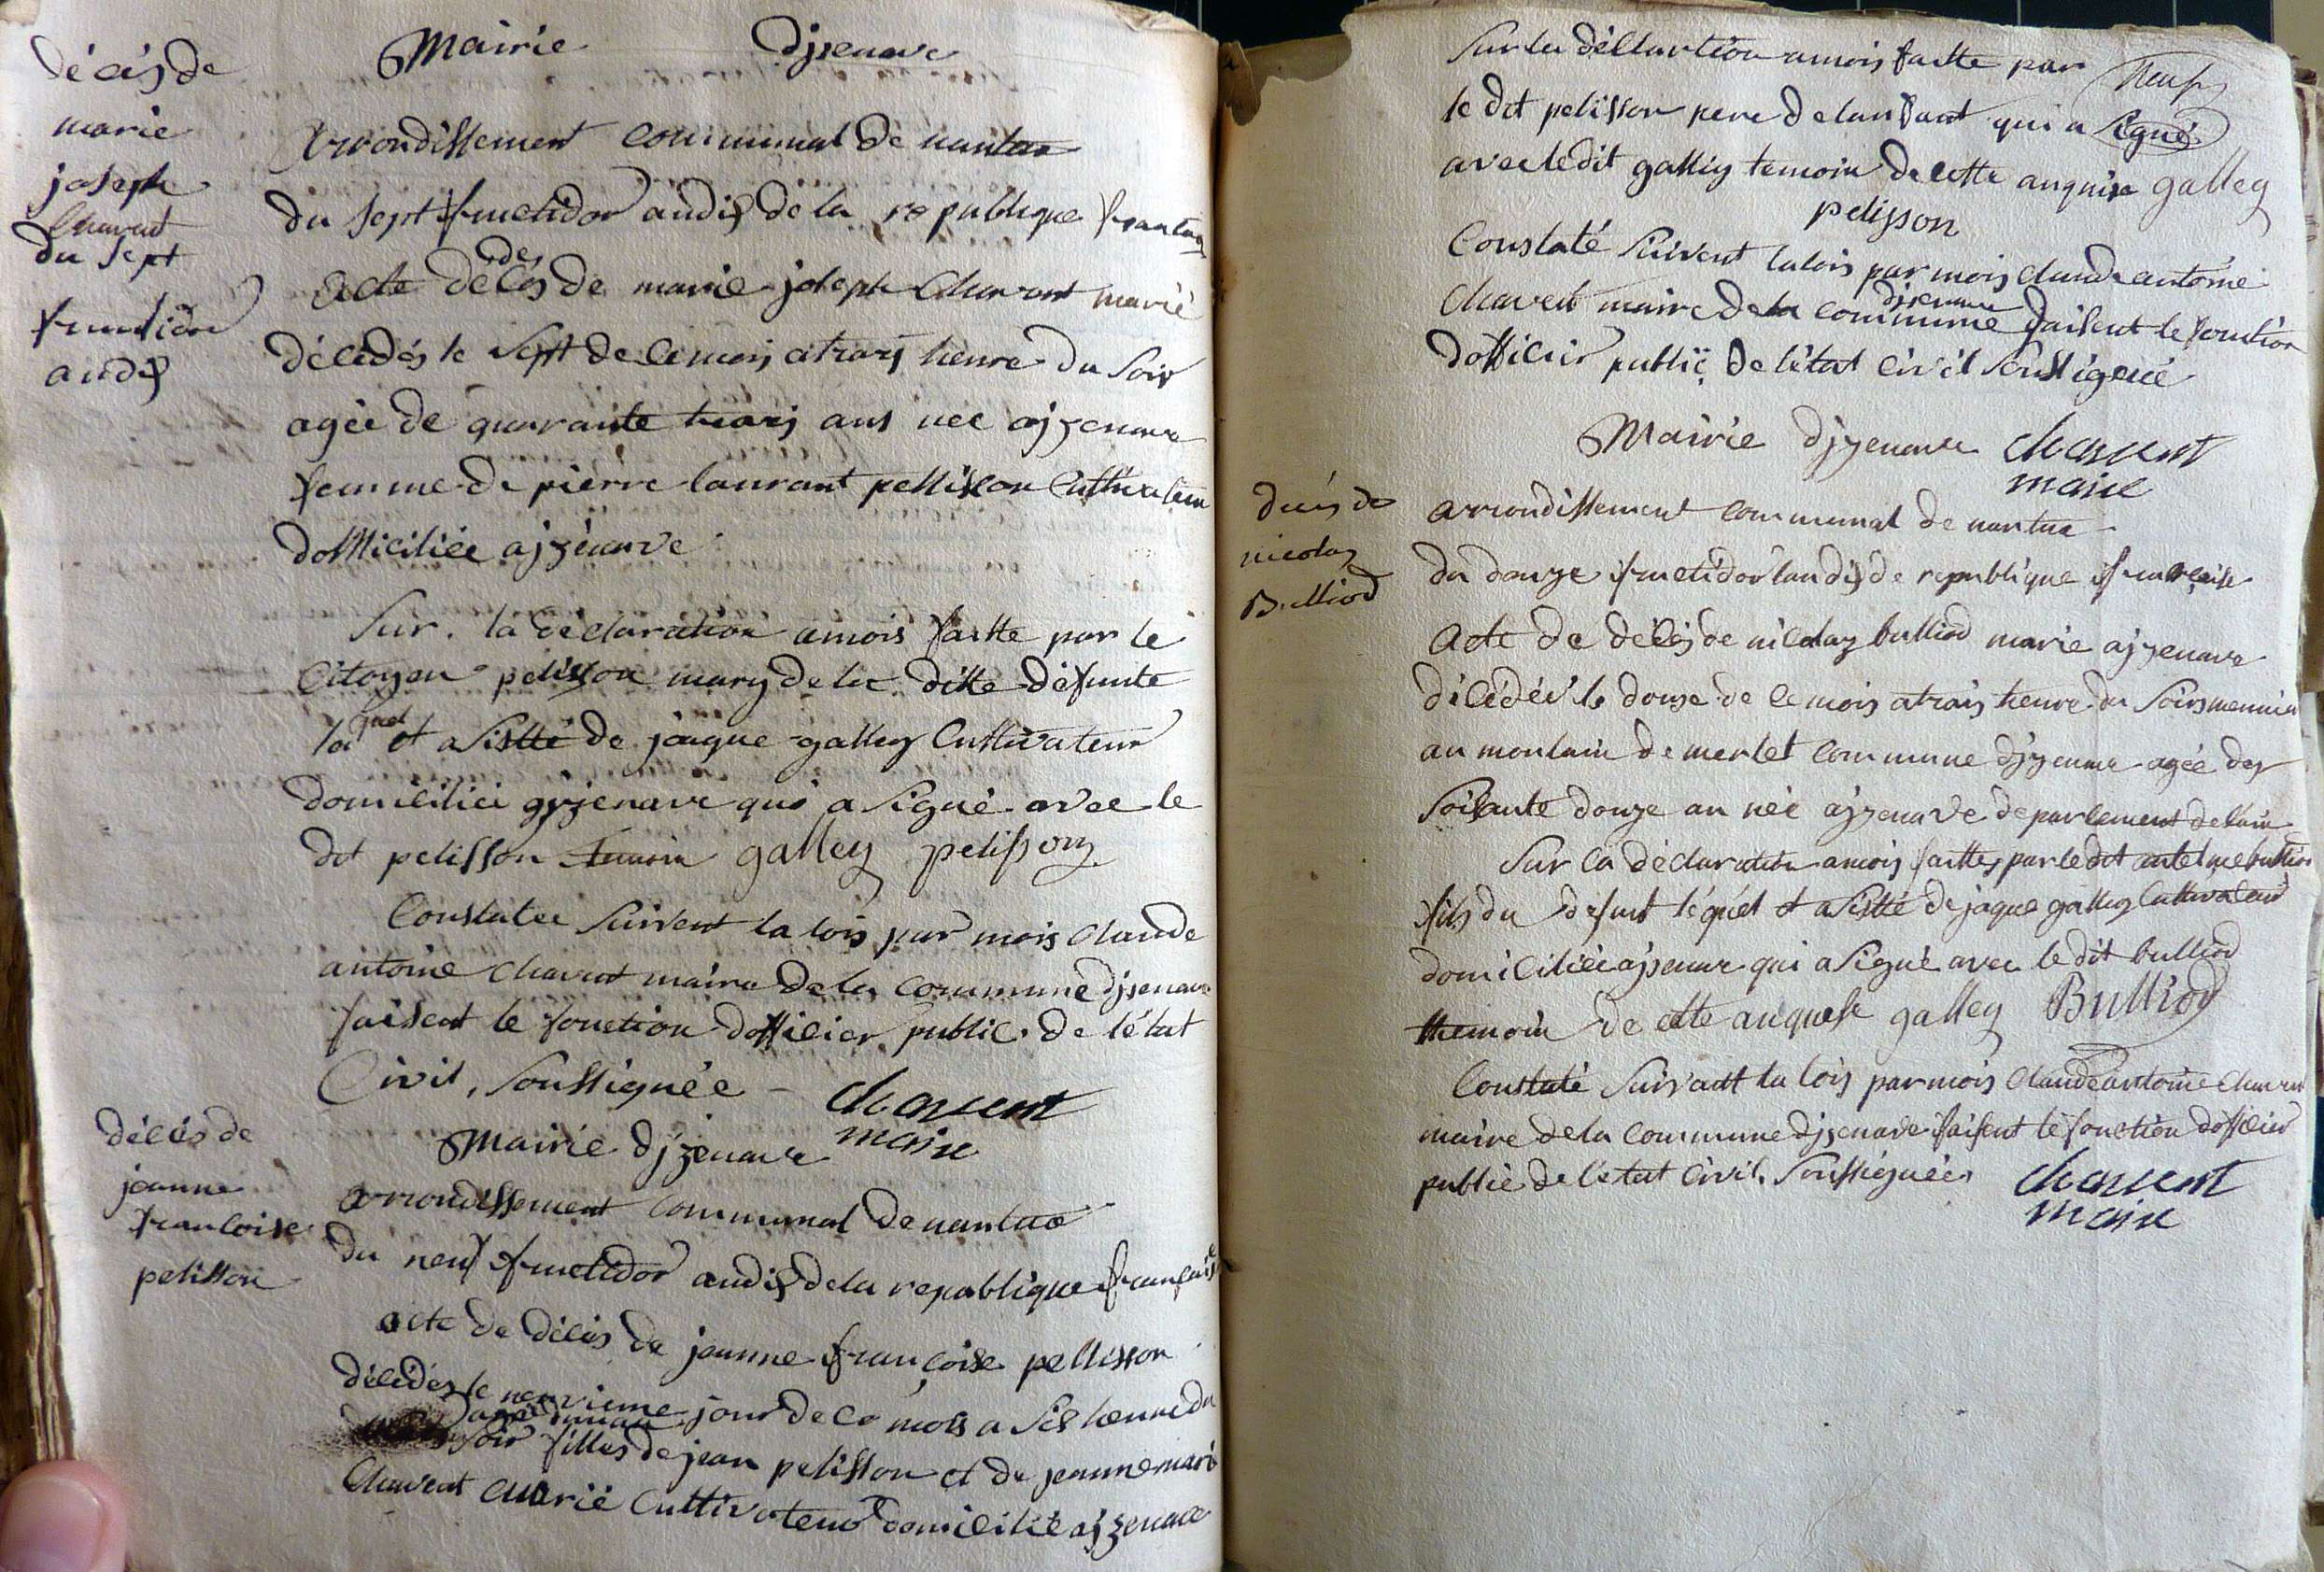 décés de
marie
joseph
Chavent
du sept
fructidor
an dis
Mairie djzenave
Arrondissement communal de nantua
du sept fructidor an dis de la republique
acte de décés de marie joseph Chavent marié
décédés le sept de ce mois a trois heure du soir
agée de quarante trois ans née ajzenave
femme de pierre laurant pellisson Cultivateur
domiciliée ajzenave
Sur la déclaration a mois faitte par le
Citoyen pelisson mary de la ditte défunte
la quel et asistté de jaque galley Cultivateur
domiciliéé ajzenave qui a signé avec le
dit pelisson temoin galley pelisson
Constatée suivent la lois par mois Claude
antoine Chavent maire de la Commune djzenave
faisent le fonction dofficier public de létat
Civil, soussignée Chavent
maire
décés de
jeanne
francoise
pelisson
Mairie djzenave
arrondissement communal de nantua
du neuf fructidor an dis de la republique francaise
acte de décés de jeanne françoise pellisson
décédés le neuvieme jour de ce mois a sis heure du
agée dun an
soir filles de jean pelisson et de jeanne marie
Chavent marié Cultivateur domicilié ajzenave
Sur la déclartion a mois faitte par
Neuf
le dit pelisson pere de lanfant qui a signé
avec le dit galley temoin de cette anquise galley
pelisson
Constaté suivent la lois par mois Claude antoine
Chavent maire de la commune djzenave faisent le fonction
dofficier public de létat civil soussignée
Mairie djzenave Chavent
maire
décés de
nicolas
Bulliod
arrondissement communal de nantua
du douze fructidor lan dis de republique francaise
Acte de décés de nicolas bulliod marie ajzenave
décédéé le douze de ce mois a trois heure du soirs
au moulain de merlet commune djzenave agée de
soisante douze an née ajzenave departement de lain
Sur la déclaration a mois faittes par le dit antelme bulliod
fils du défunt le quél et asistté de jaque galley Cultivateur
domiciliéé ajzenave qui a signé avec le dit bulliod
themoin de cette anquese galley Bulliod
Constaté suivant la lois par mois Claude antoine Chavent
maire de la commune djzenave faisent le fonction dofficier
public de létat Civil soussignée Chavent
maire